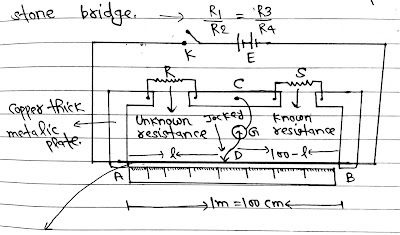 stone bridge. → R1/R2 = R3/R4
K E
R C S
Copper thick
metalic
plate.
Unknown
resistance
Jocked
G
Known
resistance
l D 100-l
A B
1m = 100 cm